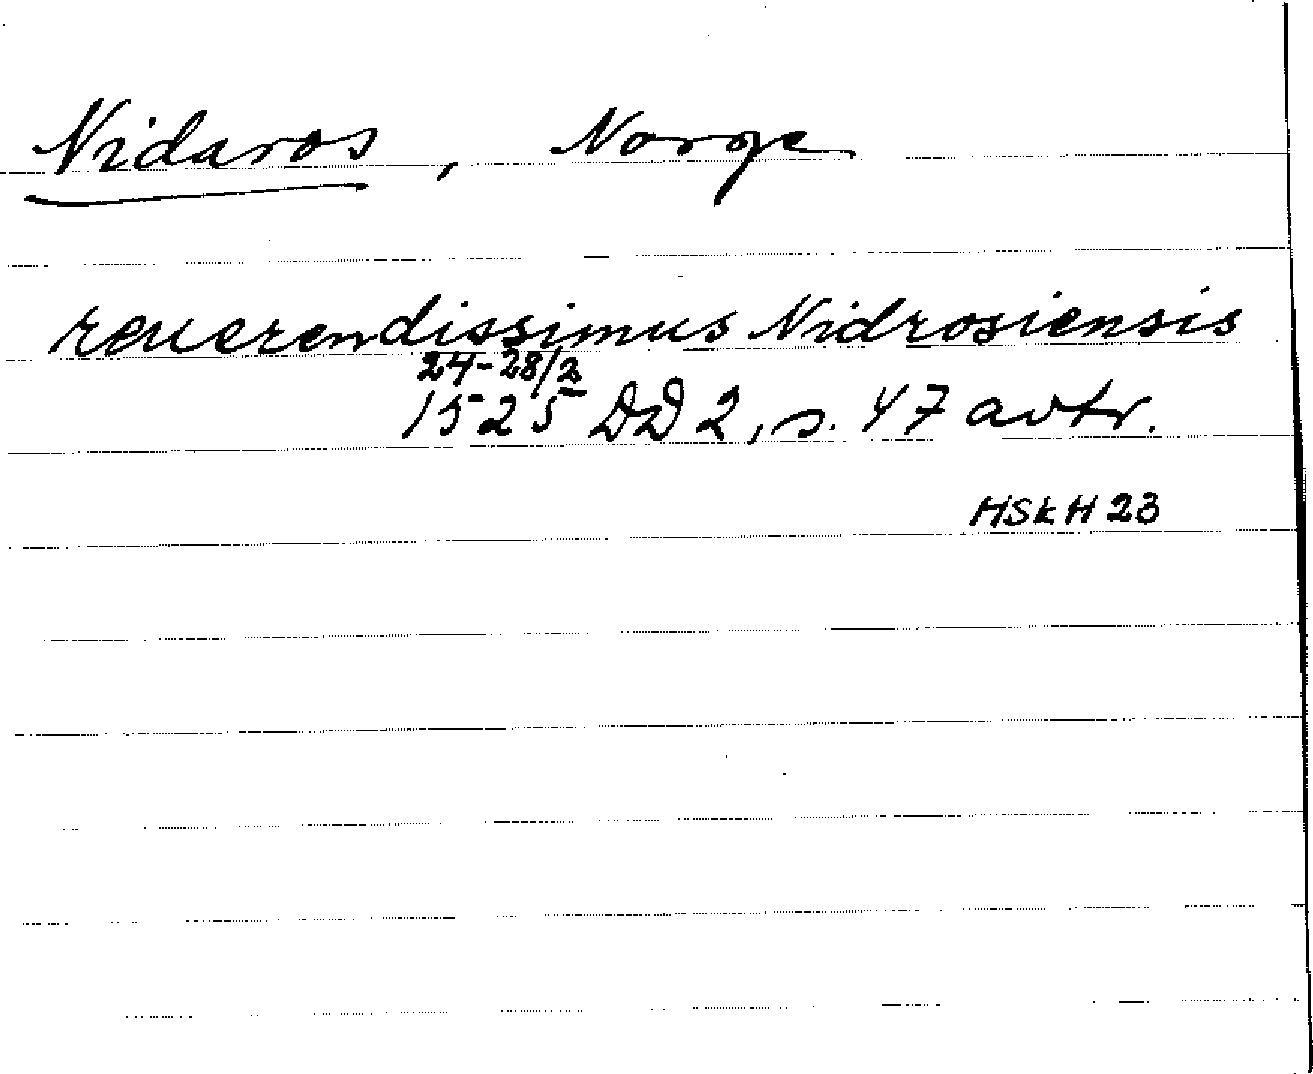 Nidaros, Norge
reuerendissimus Nidrosiensis
24-28/2
1525 DD 2, s. 47 avtr.
HSKH 23